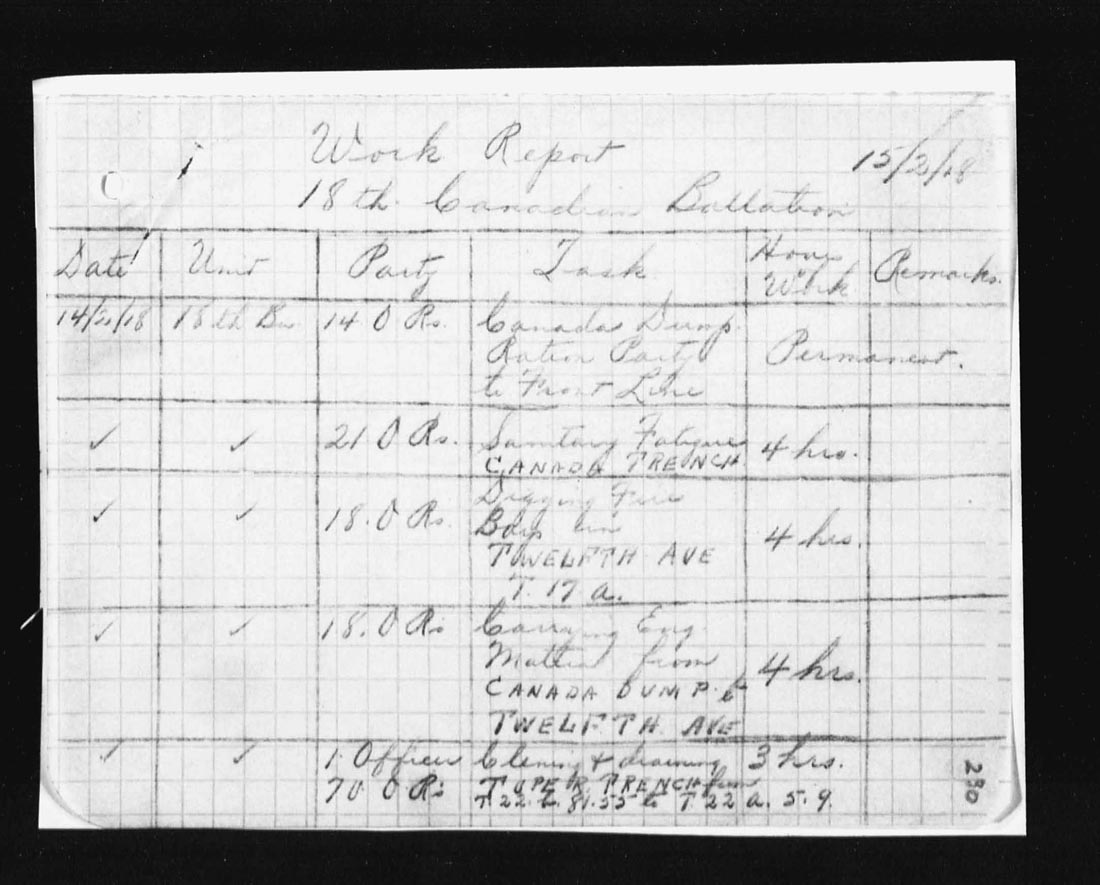 Work Report
15/2/18
18th. Canadian Battation
Date Unit Party Task Hours Work Remarks.
14/2/18 18th Bn. 14 O Rs. Canada Dump.
Ration Party Permanent.
to Front Line
✓ ✓ 21 O Rs. Sanitary Fatigue 4 hrs.
CANADA TRENCH
✓ ✓ 18. O Rs. Digging Fire
Bays in 4 hrs.
TWELFTH AVE
T. 17 a.
✓ ✓ 18. O Rs Carrying Eng.
from 4 hrs.
CANADA DUMP. to
TWELFTH AVE
✓ ✓ 1. Officer Clening & draining 3 hrs.
70 O Rs TRENCH from
T 22 to T 22 a. 5. 9.
280